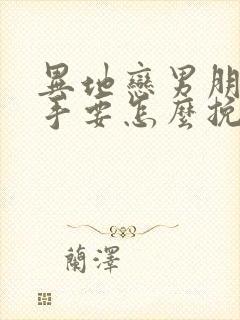 異地戀男朋
手要怎麼挽
蘭澤